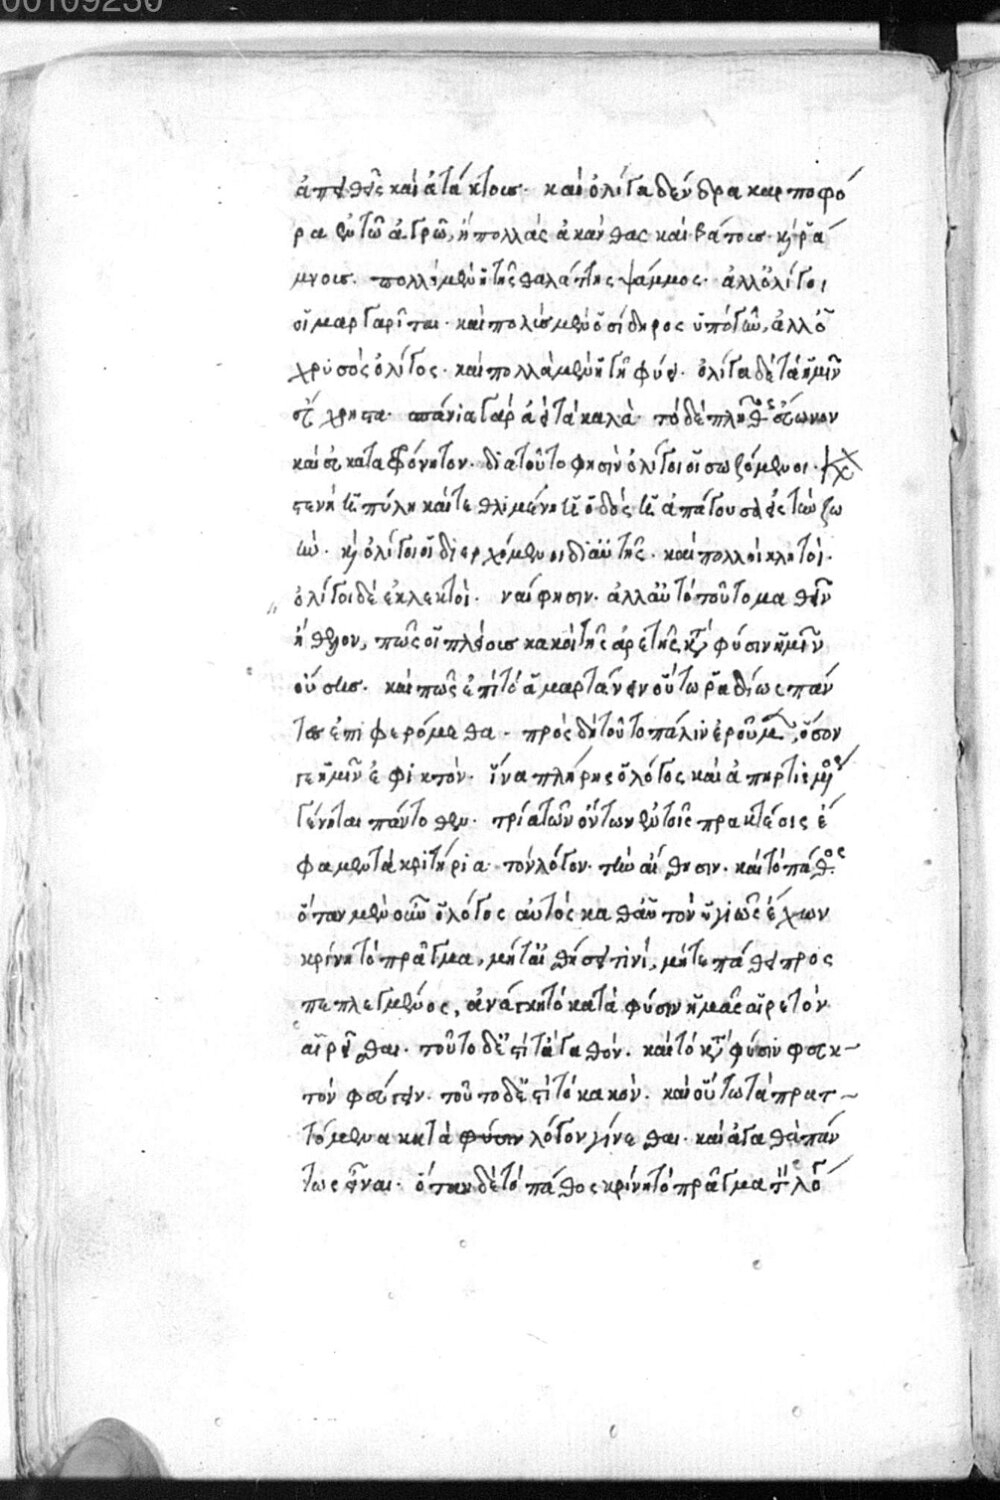 00109230
ἀπειθεῖς καὶ ἀτάκτοις. καὶ ὀλίγα δένδρα καρποφό
ρα ἐν τῶ ἀγρῶ, ἢ πολλὰς ἀκάνθας καὶ βάτοις κ ῥά
μνοις. πολλὴ μὲν ἡ τῆς θαλάττης ψάμμος. ἀλλ ὀλίγοι
οἱ μαργαρῖται. καὶ πολὺς μὲν ὁ σίδηρος ὑπὸ γῆν, ἀλλ ὁ
χρυσὸς ὀλίγος. καὶ πολλὰ μὲν ἡ γῆ φύει. ὀλίγα δὲ τὰ ἡμῖν
χρηστα. σπάνια γὰρ ἀεὶ τὰ καλὰ. τὸ δὲ πλῆθος εὔωνον
καὶ εὐκαταφρόνητον. διατοῦτο φησὶν ὀλίγοι οἱ σωζόμενοι.
στενὴ ἡ πύλη καὶ τεθλιμένη ἡ ὁδὸς ἡ ἀπάγουσα εἰς τὴν ζω
ὴν. κ ὀλίγοι οἱ διερχόμενοι διαὐτῆς. καὶ πολλοὶ κλητοὶ.
ὀλίγοι δὲ ἐκλεκτοὶ. ναί φησιν. ἀλλ αὐτὸ τοῦτο μαθεῖν
ἤθελον, πῶς οἱ πλείοις κακοὶ τῆς ἀρετῆς κατὰ φύσιν ἡμῖν
οὔσης. καὶ πῶς ἐπὶ τὸ ἁμαρτάνειν οὕτω ῥαδίως πάν
τες ἐπιφερόμεθα. πρὸς δὴ τοῦτο πάλιν ἐροῦμεν, ὅσον
γε ἡμῖν ἐφικτὸν. ἵνα πλήρης ὁ λόγος καὶ ἀπηρτισμένος
γένηται πάντοθεν. τρία τῶν ὄντων ἐν τοῖς πρακτέοις ἔ
φαμεν τὰ κριτήρια. τὸν λόγον. τὴν αἴσθησιν. καὶ τὸ πάθος
ὅταν μὲν οὖν ὁ λόγος αὐτὸς καθ αὑτὸν ὑγιῶς ἔχων
κρίνη τὸ πρᾶγμα, μήτ αἰσθήσει τινὶ, μήτε πάθει προς
πεπλεγμένος, ἀνάγκη τὸ κατὰ φύσιν ἡμᾶς αἱρετὸν
αἱρεῖσθαι. τοῦτο δέ ἐστι τἀγαθόν. καὶ τὸ φύσιν φευκ
τὸν φεύγειν. τοῦτο δέ ἐστι τὸ κακόν. καὶ οὕτω τὰ πρατ
τόμενα κατὰ φύσιν λόγον γίνεσθαι. καὶ ἀγαθὰ πάν
τως εἶναι. ὅταν δὲ τὸ πάθος κρίνη τὸ πρᾶγμα τοῦ λό